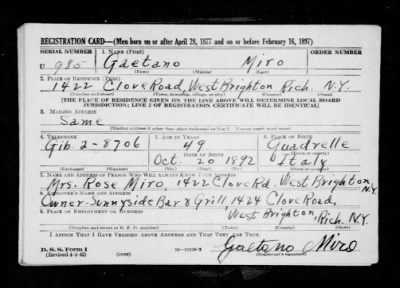 REGISTRATION CARD—(Men born on or after April 28, 1877 and on or before February 16, 1897)
SERIAL NUMBER 1. NAME (Print) ORDER NUMBER
U 985 Gaetano Miro
(First) (Middle) (Last)
2. PLACE OF RESIDENCE (Print)
1422 Clove Road, West Brighton Rich. N.Y.
(Number and street) (Town, township, village, or city) (County) (State)
[THE PLACE OF RESIDENCE GIVEN ON THE LINE ABOVE WILL DETERMINE LOCAL BOARD
JURISDICTION; LINE 2 OF REGISTRATION CERTIFICATE WILL BE IDENTICAL]
3. MAILING ADDRESS
Same
[Mailing address if other than place indicated on line 2. If same insert word same]
4. TELEPHONE 5. AGE IN YEARS 6. PLACE OF BIRTH
Gib. 2-8706 49 Quadrelle
DATE OF BIRTH (Town or county)
Oct. 20 1892 Italy
(Exchange) (Number) (Mo.) (Day) (Yr.) (State or country)
7. NAME AND ADDRESS OF PERSON WHO WILL ALWAYS KNOW YOUR ADDRESS
Mrs. Rose Miro, 1422 Clove Rd. West Brighton, N.Y.
8. EMPLOYER'S NAME AND ADDRESS
Owner-Sunnyside Bar & Grill, 1424 Clove Road,
9. PLACE OF EMPLOYMENT OR BUSINESS
West Brighton, Rich. N.Y.
(Number and street or R. F. D. number) (Town) (County) (State)
I AFFIRM THAT I HAVE VERIFIED ABOVE ANSWERS AND THAT THEY ARE TRUE.
D. S. S. Form 1
(Revised 4-1-42) (over)
Gaetano Miro